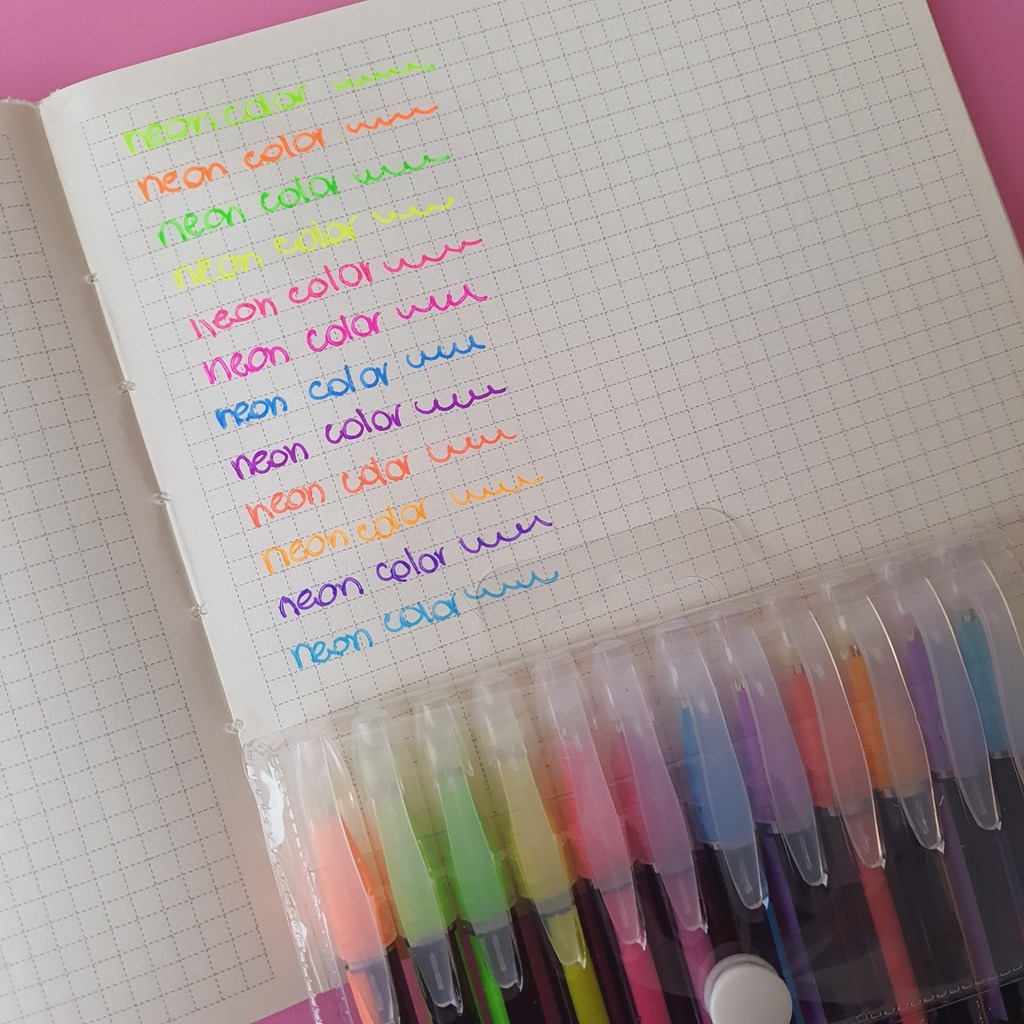 neon color
neon color
neon color
neon color
neon color
neon color
neon color
neon color
neon color
neon color
neon color
neon color